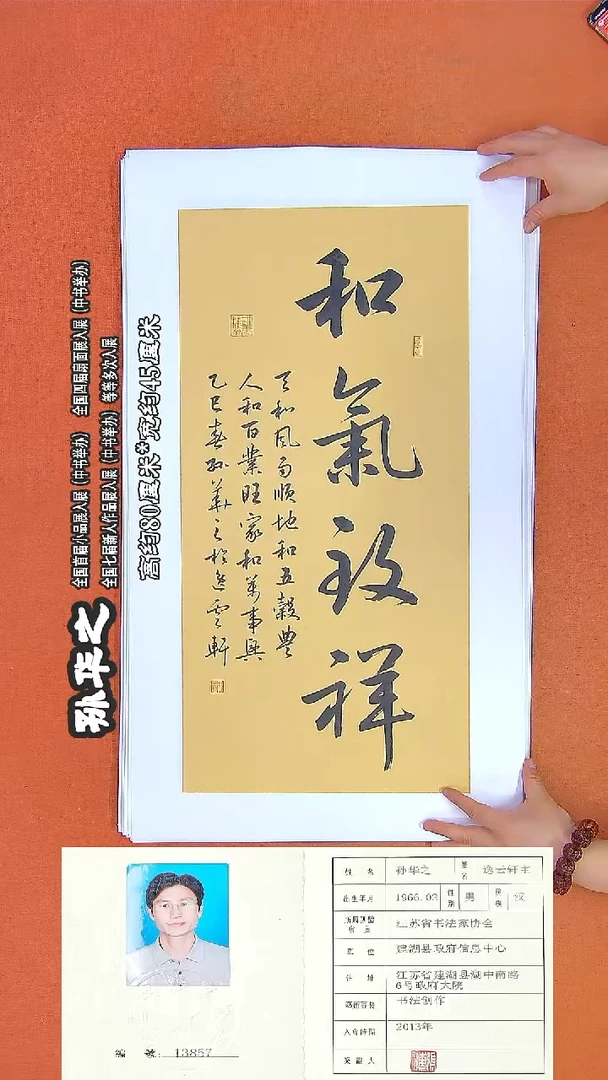 和氣致祥
天和風雨順地和五穀豊
人和百業旺家和萬事興
乙巳春孙華之於逸雲軒
高约80厘米*宽约45厘米
全国首届小品展入展（中书举办） 全国四届扇面展入展（中书举办）
全国七届新人作品展入展（中书举办） 等等多次入展
孙华之
编 号: 13857
姓 名 孙华之 笔名 逸云轩主
出生年月 1966.02 性别 男 民族 汉
江苏省书法家协会
单 位 建湖县政府信息中心
住 址 江苏省建湖县湖中南路
6号政府大院
书法创作
入会时间 2013年